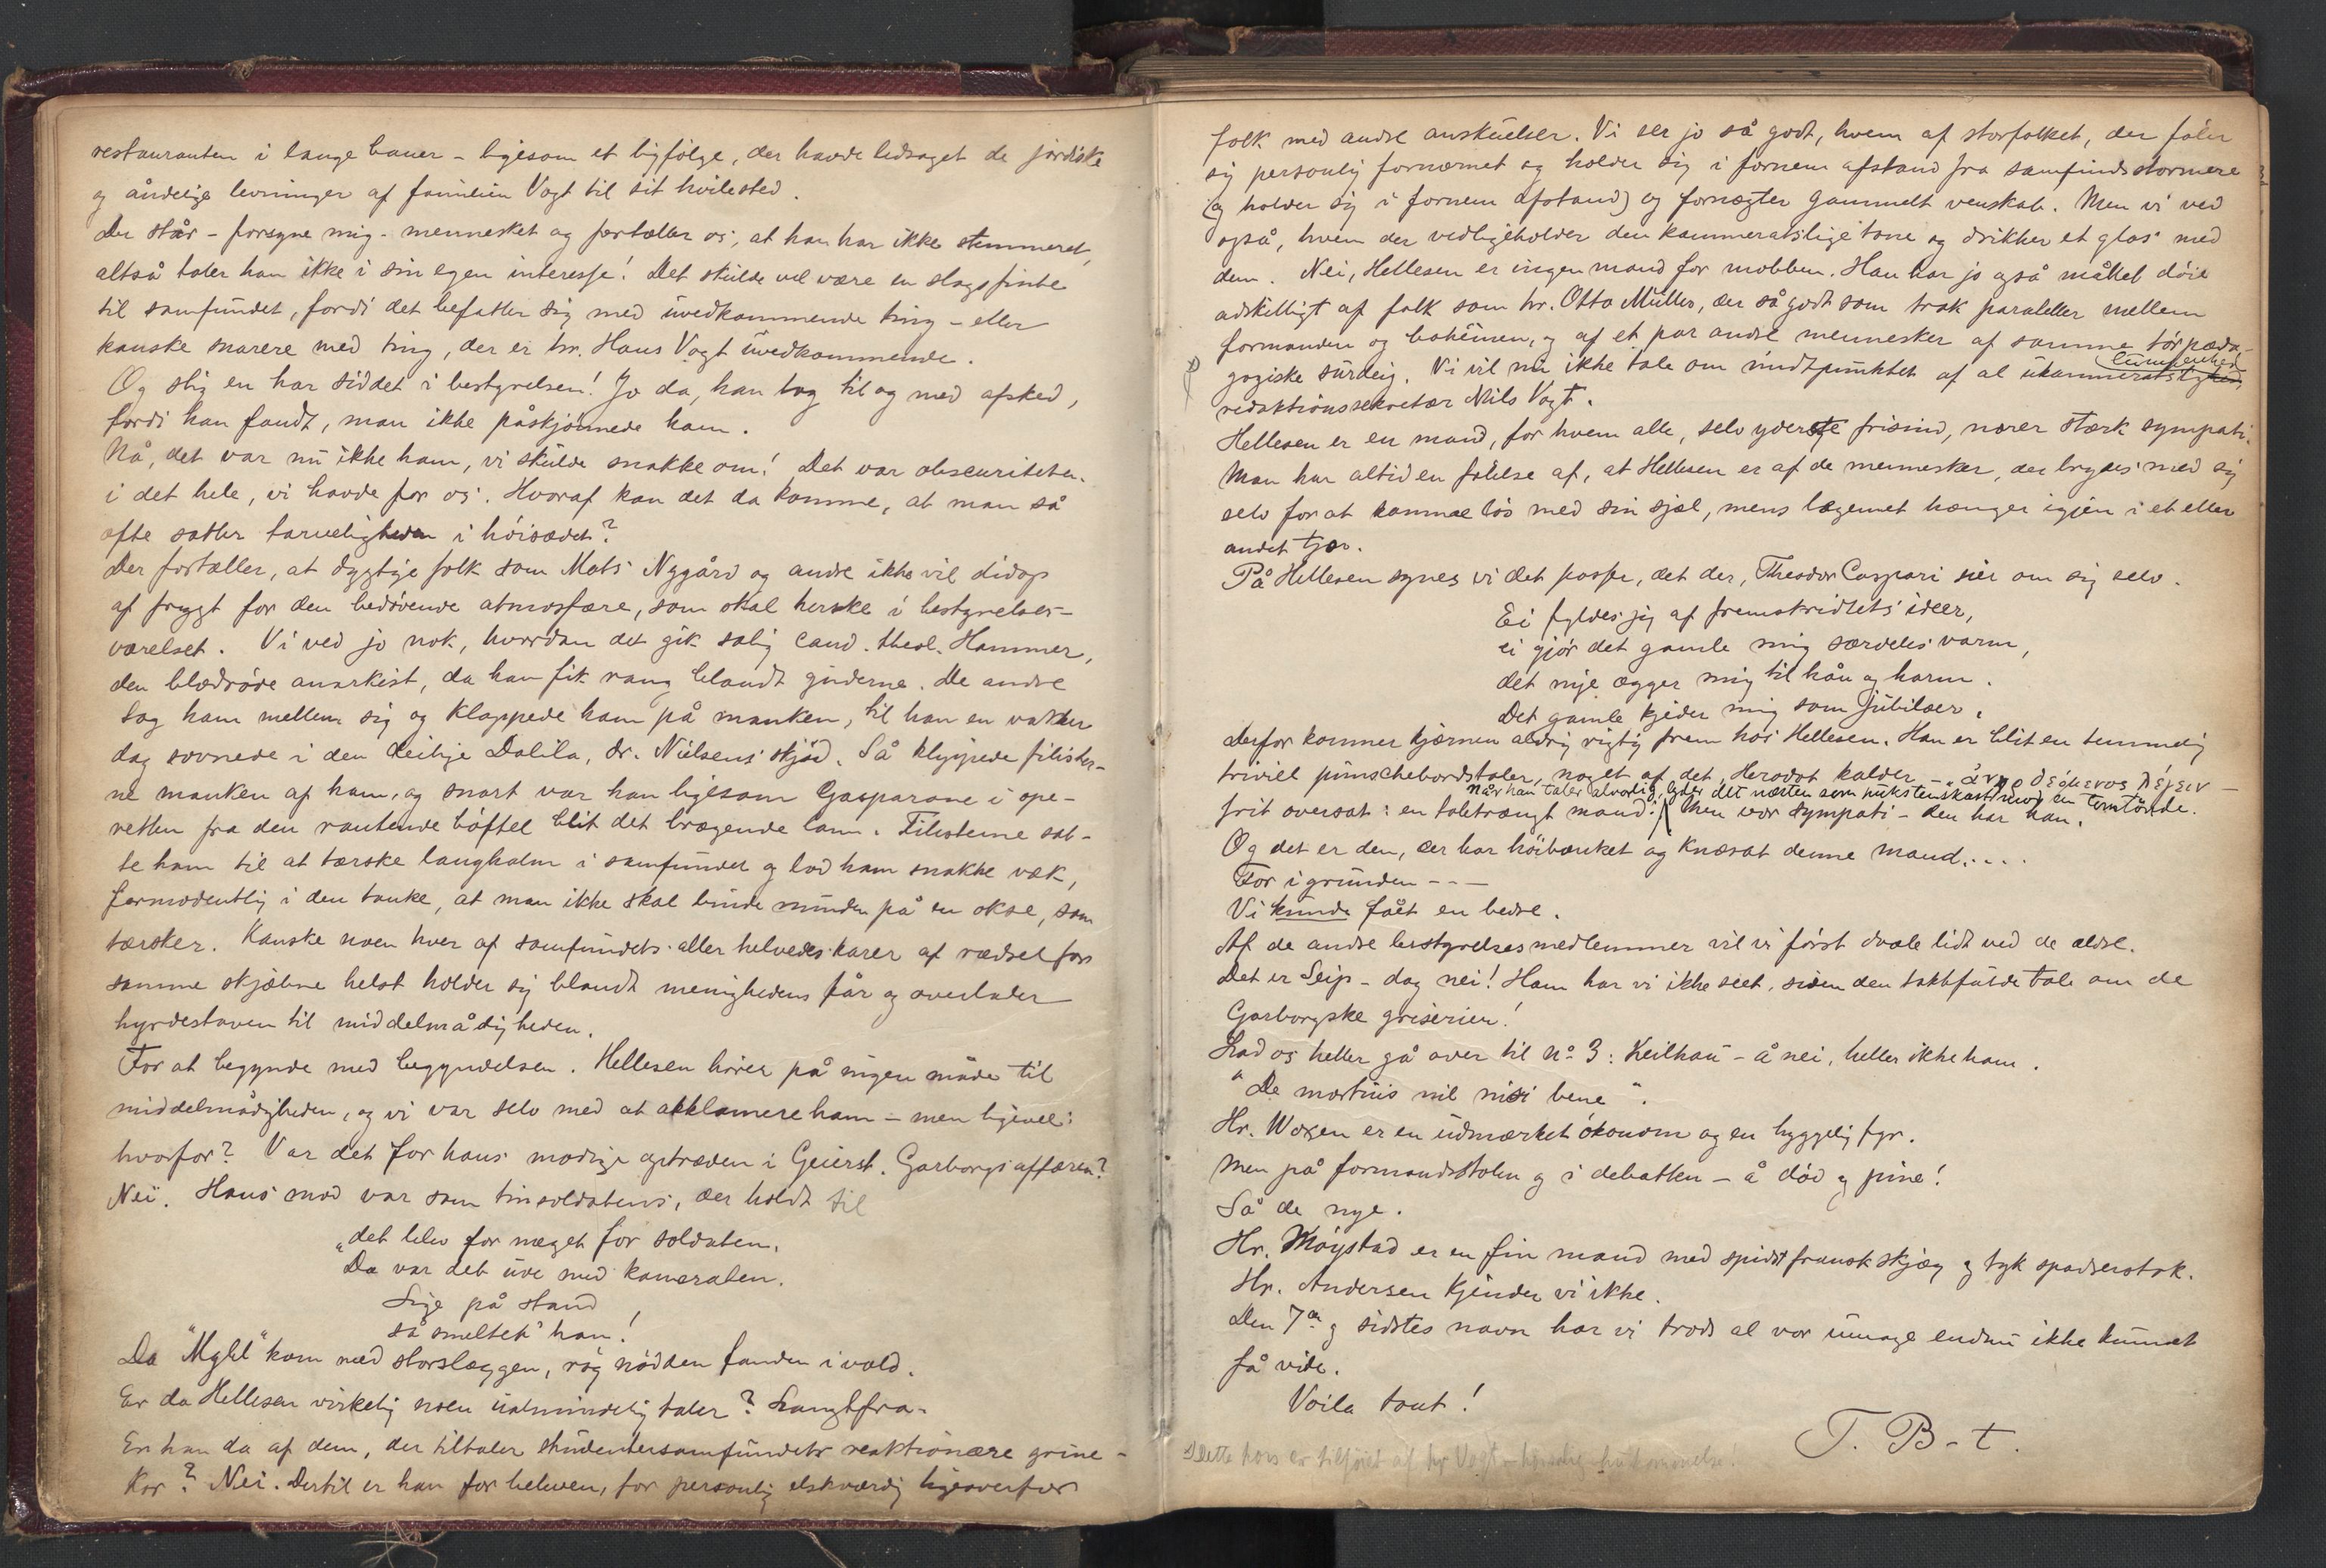 restauranten i lange baner – ligesom et ligfølge, der havde ledsaget de jordiske
og åndelige levninger af familien Vogt til sit hvilested.
Der står – forsyne mig – mennesket og fortæller os, at han har ikke stemmeret,
altså taler han ikke i sin egen interesse! Det skulde vel være en slags finte
til samfundet, fordi det befatter sig med uvedkommende ting – eller
kanske snarere med ting, der er hr. Hans Vogt uvedkommende.
Og slig en har siddet i bestyrelsen! Jo da, han tog til og med afsked,
fordi han fandt, man ikke påskjønnede ham.
Nå, det var nu ikke ham, vi skulde snakke om! Det var obscuriteten
i det hele, vi havde for os. Hvoraf kan det da komme, at man så
ofte sætter tarveligheden i høisædet?
Der fortælles, at dygtige folk som Mats Nygård og andre ikke vil didop
af frygt for den bedøvende atmosfære, som skal herske i bestyrelses-
værelset. Vi ved jo nok, hvordan det gik salig cand. theol. Hammer,
den blodrøde anarkist, da han fik rang blandt guderne. De andre
tog ham mellem sig og klappede ham på manken, til han en vakker
dag sovnede i den deilige Dalila, dr. Nielsens skjød. Så klippede filister-
ne manken af ham, og snart var han ligesom Gasparone i ope-
retten fra den rautende bøffel blit det brægende lam. Filisterne sat-
te ham til at tærske langhalm i samfundet og lod ham snakke væk,
formodentlig i den tanke, at man ikke skal binde munden på en okse, som
tærsker. Kanske noen hver af samfundets aller helvedes karer af rædsel for
samme skjæbne helst holder sig blandt menighedens får og overlader
hyrdestaven til middelmådigheden.
For at begynde med begyndelsen. Hellesen hører på ingen måde til
middelmådigheden, og vi var selv med at akklamere ham – men ligevel:
hvorfor? Var det for hans modige optræden i Geierst. Garborgs affæren?
Nei. Hans mod var som tinsoldatens, der holdt til
"det blev for meget for soldaten.
Da var det ude med kameraten.
Lige på stand
så smeltet' han!
Da "Mgbl" kom med storslæggen, røg nødden fanden i vold.
Er da Hellesen virkelig noen ualmindelig taler? Langtfra.
Er han da af dem, der tiltaler studentersamfundets reaktionære grine-
kor? Nei. Dertil er han for beleven, for personlig elskværdig ligeoverfor
folk med andre anskuelser. Vi ser jo så godt, hvem af storfolket, der føler
sig personlig fornærmet og holder sig i fornem afstand fra samfundsstormere
(og holder sig i fornem afstand) og fornægter gammelt venskab. Men vi ved
også, hvem der vedligeholder den kammeratslige tone og drikker et glas med
dem. Nei, Hellesen er ingen mand for mobben. Han har jo også måttet døie
adskilligt af folk som hr. Otto Müller, der så godt som trak paraleller mellem
formanden og bohêmen, og af et par andre mennesker af samme tørpæda-
gogiske surdeig. Vi vil nu ikke tale om midtpunktet af al ukammeratslighed, lumpenhed
redaktionssekretær Nils Vogt.
Hellesen er en mand, for hvem alle, selv yderste frisind, nærer stærk sympati.
Man har altid en følelse af, at Hellesen er af de mennesker, der brydes med sig
selv for at komme løs med sin sjæl, mens lægemet hænger igjen i et eller
andet tjor.
På Hellesen synes vi det passer, det der, Theodor Caspari sier om sig selv.
Ei fyldes jeg af fremskridtets ideer,
ei gjør det gamle mig særdeles varm,
det nye ægger mig til hån og harm.
Det gamle kjeder mig som jubilæer.
Derfor kommer kjærnen aldrig rigtig frem hos Hellesen. Han er blit en temmelig
triviel punschebordstaler, noget af det, Herodot kalder
Når han taler alvorlig, lyder det næsten som pukstenskast mod en tomtønde.
frit oversat: en taletrængt mand. Men vor sympati – den har han.
Og det er den, der har høibænket og knæsat denne mand....
For i grunden – – –
Vi kunde fået en bedre.
Af de andre bestyrelsesmedlemmer vil vi først dvæle lidt ved de ældre.
Det er Seip – dog nei! Ham har vi ikke seet, siden den taktfulde tale om de
Garborgske griserier!
Lad os heller gå over til No 3: Keilhau – å nei, heller ikke ham.
"De mortuis nil nisi bene".
Hr. Woxen er en udmærket økonom og en hyggelig fyr.
Men på formandsstolen og i debatten – å død og pine!
Så de nye.
Hr. Møystad er en fin mand med spidst fransk skjæg og tyk spadserstok.
Hr. Andersen kjender vi ikke.
Den 7de og sidstes navn har vi trods al vor umage endnu ikke kunnet
få vide.
Voila tout!
T. B-t.
Dette hors er tilføiet af hr Vogt